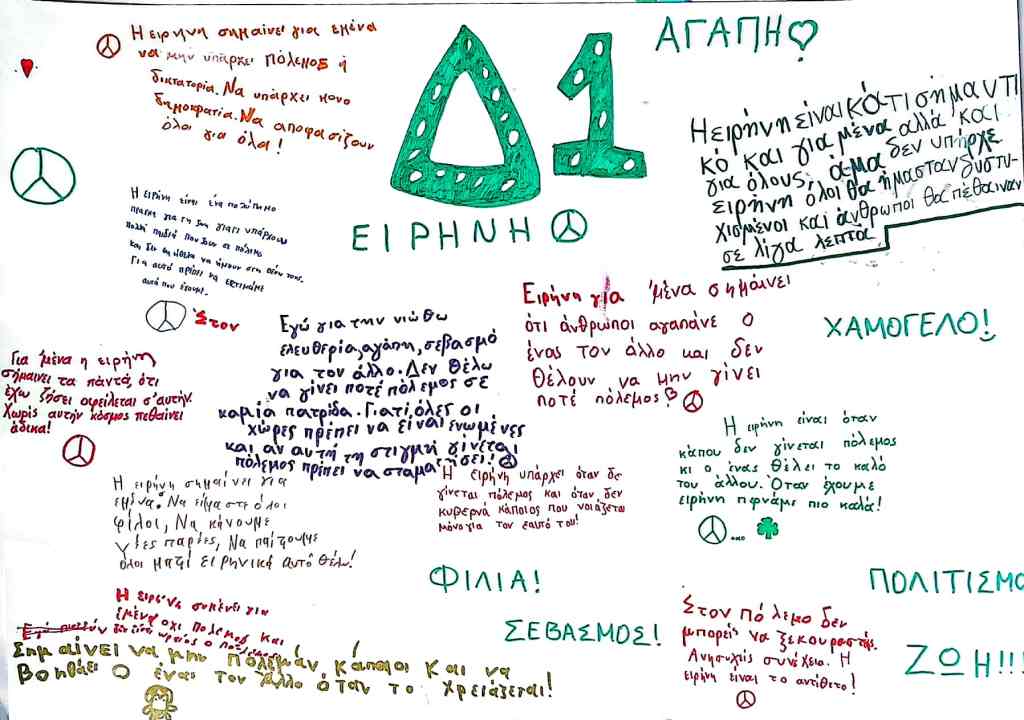 Η ειρήνη σημαίνει για εμένα
να μην υπάρχει πόλεμος ή
δικτατορία. Να υπάρχει μονο
δημοκρατία. Να αποφασίζουν
όλοι για όλα!
Δ1
ΕΙΡΗΝΗ
ΑΓΑΠΗ
Η ειρήνη είναι κάτι σήμαντι
κό και για μένα αλλά και
για όλους, άμα δεν υπήρχε
ειρήνη όλοι θα ήμασταν δυστυ-
χισμένοι και άνθρωποι θα πέθαιναν
σε λίγα λεπτά.
Η ειρήνη είναι ένα πολύτιμο
για τη ζωή γιατί υπάρχουν
πολλά παιδιά που ζουν σε πόλεμο
και δεν θα ήθελα να ήμουν στη θέση τους.
Για αυτό πρέπει να εκτιμάμε
αυτά που έχουμε.
Στον
Εγώ για την νιώθω
ελευθερία, αγάπη, σεβασμό
για τον άλλο. Δεν θέλω
να γίνει ποτέ πόλεμος σε
καμία πατρίδα. Γιατί όλες οι
χώρες πρέπει να είναι ενωμένες
και αν αυτή τη στιγμή γίνεται
πόλεμος πρέπει να σταματήσει!
Ειρήνη για 'μένα σημαίνει
ότι άνθρωποι αγαπάνε ο
ένας τον άλλο και δεν
θέλουν να μην γίνει
ποτέ πόλεμος!
ΧΑΜΟΓΕΛΟ!
Για 'μένα η ειρήνη
σήμαινει τα πάντα, ότι
έχω ζήσει οφείλεται σ'αυτήν.
Χωρίς αυτήν κόσμος πεθαίνει
άδικα!
Η ειρήνη είναι όταν
κάπου δεν γίνεται πόλεμος
κι ο ένας θέλει το καλό
του άλλου. Όταν έχουμε
ειρήνη περνάμε πιο καλά!
Η ειρήνη σημαίνει για
εμένα: Να είμαστε όλοι
φίλοι, Να κάνουμε
νέες παρέες, Να παίζουμε
όλοι μαζί ειρηνικά αυτό θέλω!
Η ειρήνη υπάρχει όταν δε
γίνεται πόλεμος και όταν δεν
κυβερνά κάποιος που νοιάζεται
μόνο για τον εαυτό του!
ΦΙΛΙΑ!
ΣΕΒΑΣΜΟΣ!
ΠΟΛΙΤΙΣΜΟ
Η ειρήνη σημένει για
εμένα όχι πόλεμος και
δεν είναι ωραίος ο πόλεμος
Σημαίνει να μην πολεμάν κάποιοι και να
βοηθάει ο ένας τον άλλο όταν το χρειάζεται!
Στον πόλεμο δεν
μπορείς να ξεκουραστής.
Ανησυχείς συνέχεια. Η
ειρήνη είναι το αντίθετο!
ΖΩΗ!!!